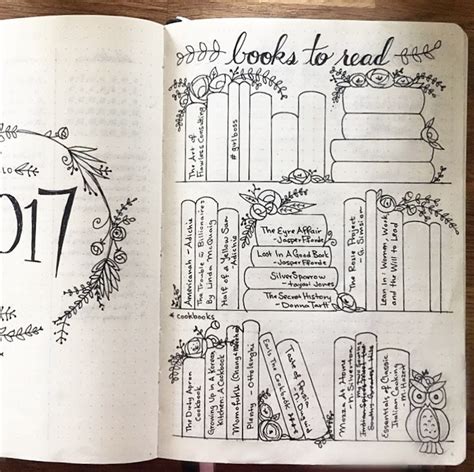 2017
books to read
The Art of
Flawless Consulting
#girlboss
Americanah - Adichie
The Trouble w Billionaires
By Linda McQuaig
Half of a Yellow Sun
Adichie
The Eyre Affair
- Jasper Fforde
Lost In A Good Book
- Jasper Fforde
Silver Sparrow
- Tayari Jones
The Secret History
- Donna Tartt
The Rosie Project
- G. Simsion
Lean In: Women, Work,
and the Will to Lead
cookbooks
The Dirty Apron
Cookbook
Growing Up in a Korean
Kitchen: A Cookbook
Momofuku (Chang+
Plenty - Ottolenghi
Falls The Cookbook
Taste of Persia
Mozza At Home
- N. Silverton
Essentials of Classic
Italian Cooking
M. Hazan